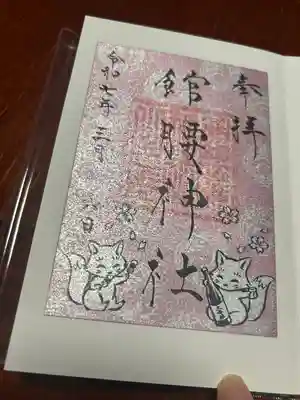 奉拝
館腰神社
令和七年三月 日